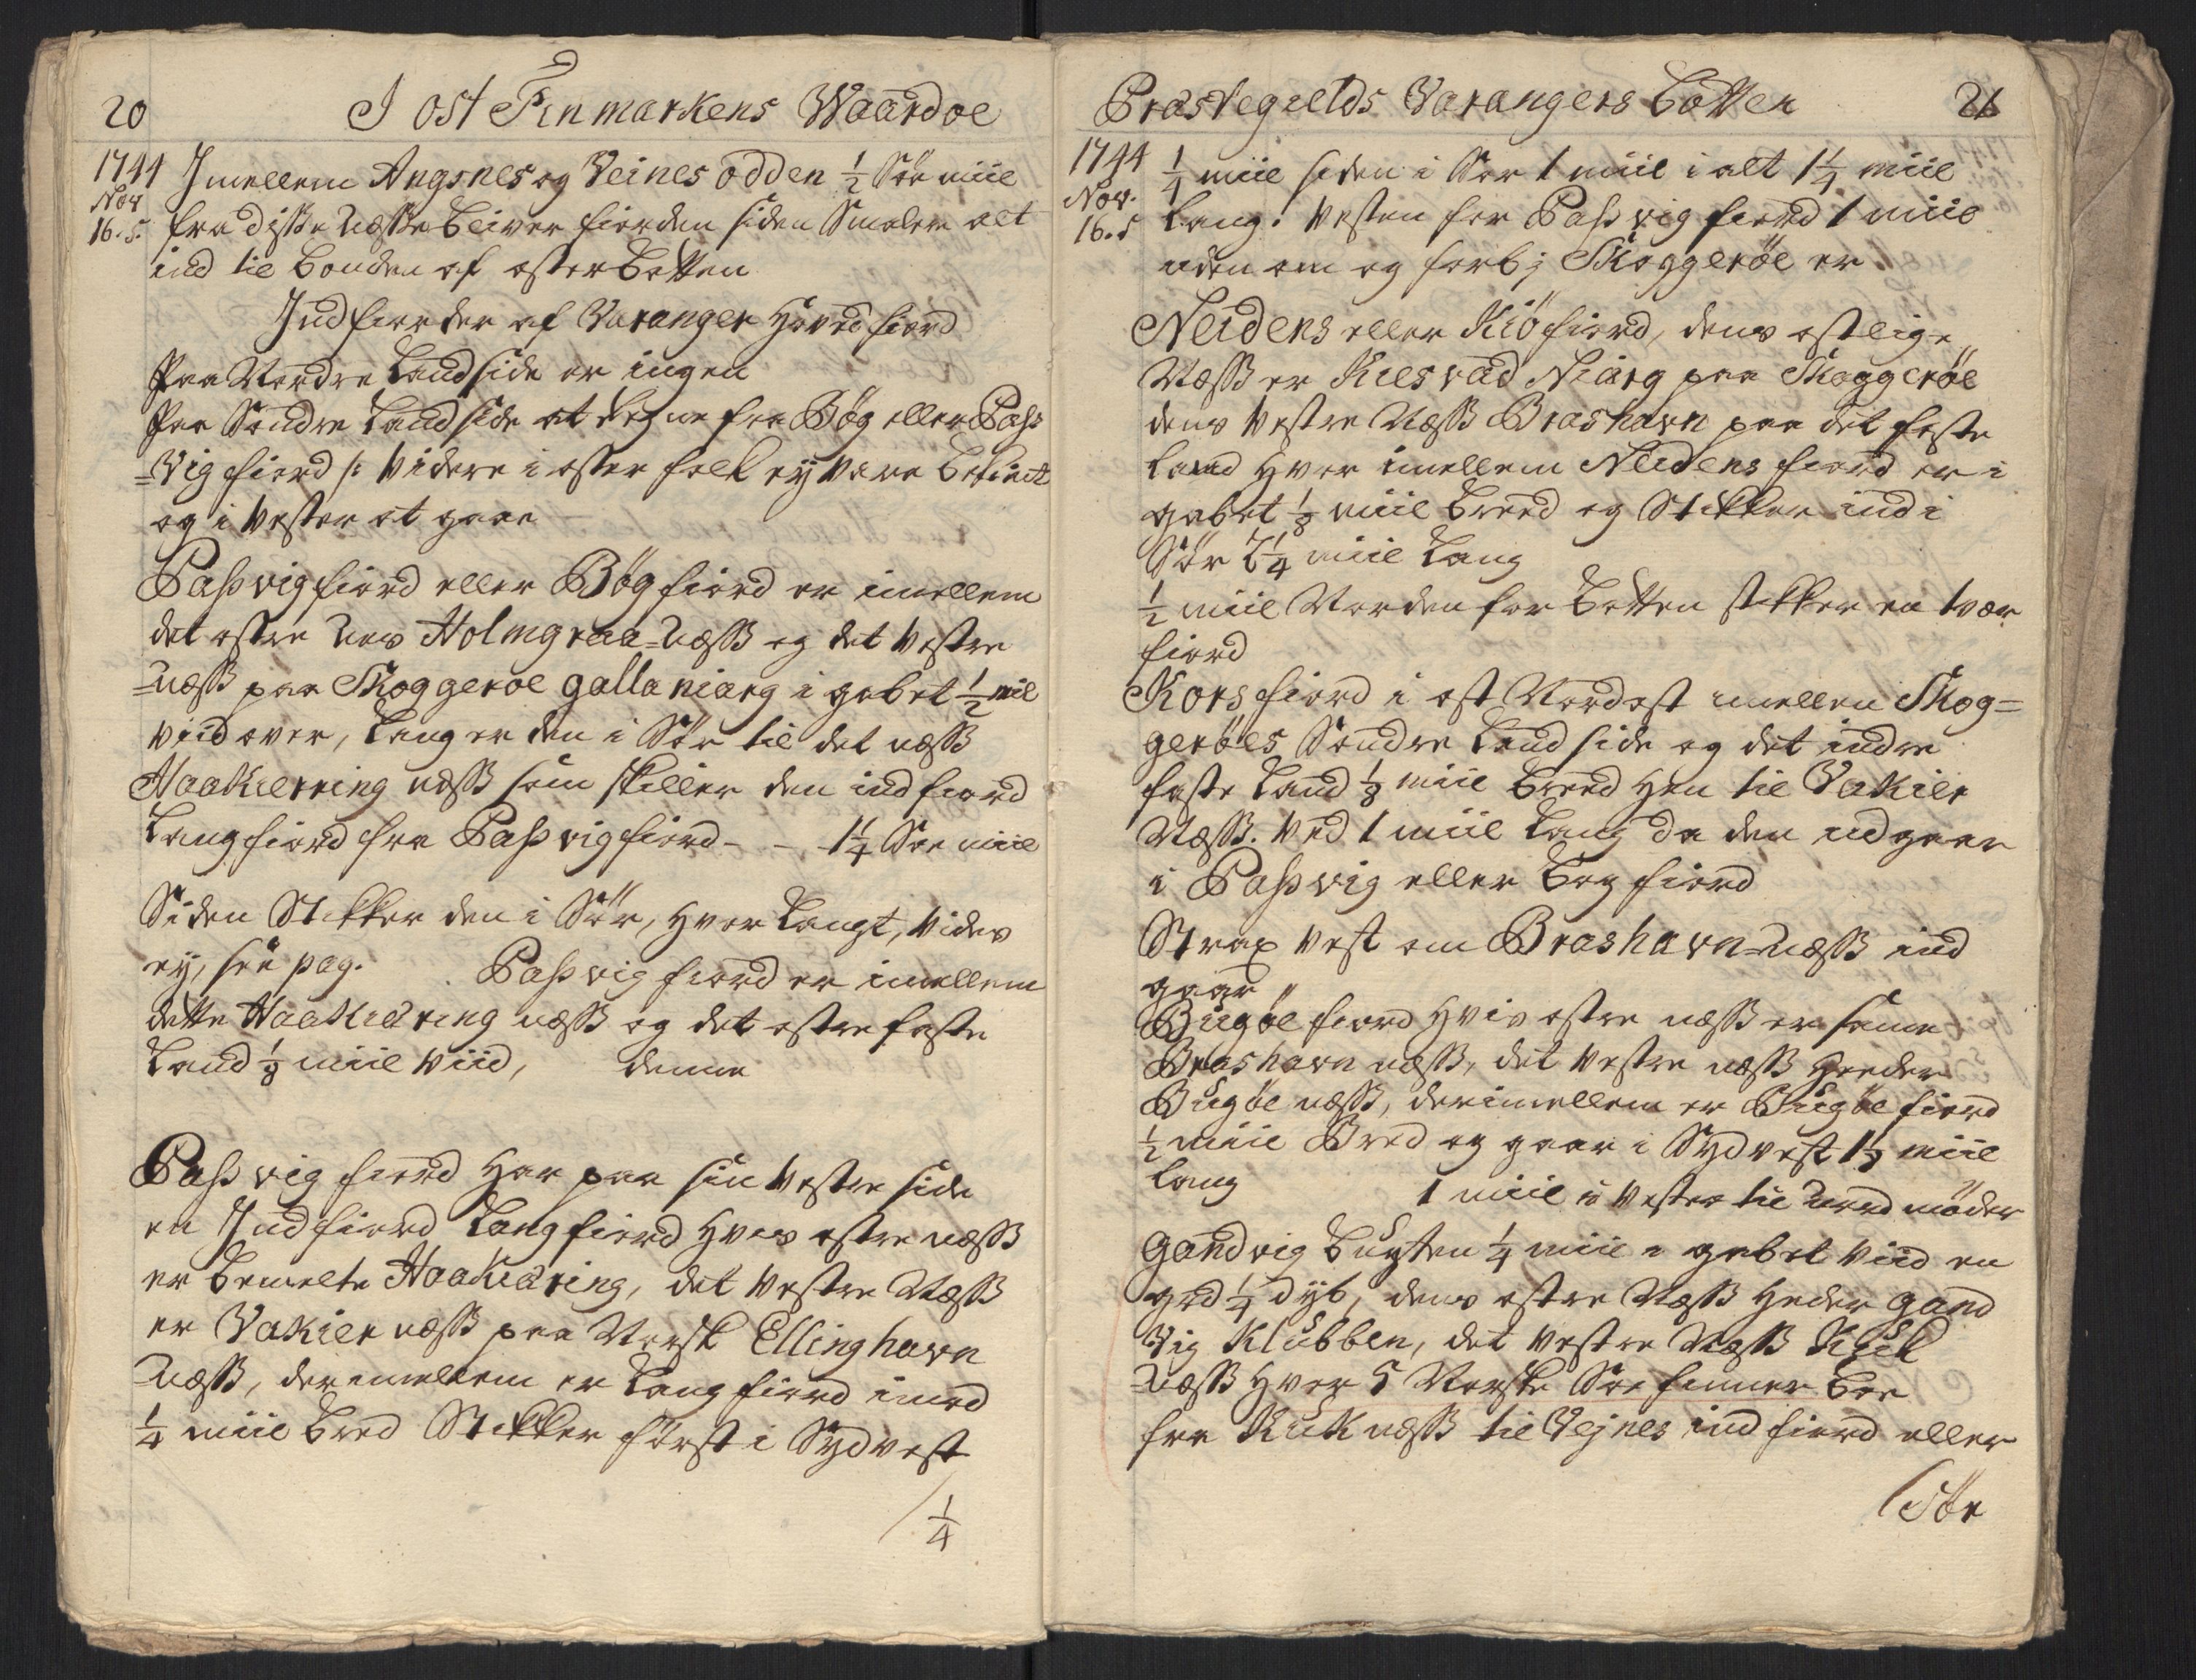 20 I Ost Finmarkens Waardøe
1744 Imellem Angsnes og Veines odden 1/2 Søe miil
Nov
16. s. fra disse Næsse bliver fiorden siden Smalere alt
ind til bonden af øster botten
Indfiorder af Varanger Hoved fiord
Paa Nordre Landside er ingen
Paa Søndre Landside at regne fra Bøg eller Pas
=Vig fiord /: videre i øster folk ey vare bekiendt
og i vester at gaae
Pasvig fiord eller Bøg fiord er imellem
det østre Næs Holmgraa=Næss og det vestre
=næss paa Skoggerøe galla niarg i gabet 1/2 mil
viid over, Lang er den i Sør til det næss
Haakierring næss som skiller den ind fiord
Langfiord fra Pasvig fiord - - 1 1/4 Søe miil
Siden Stikker den i Sør, hvor Langt, vides
ey, see pag. Pasvig fiord er imellem
dette Haakiæring næss og det østre faste
Land 1/8 miil viid, denne
Pasvig fiord har paa sin vestre side
en Indfiord Langfiord hvis østre næss
er bemelte Haakiæring, det vestre Næss
er Vakier næss paa Norsk Ellinghavn
Næss, derimellem er Lang fiord imod
1/4 miil bred Stikker først i Sydvest
1/4
Præstegields Varangers Botten 21
1744 1/4 miil siden i Sør 1 miil i alt 1 1/4 miil
Nov.
16. s Lang. Vesten for Pasvig fiord 1 miil
uden om og forbj Skoggerøe er
Neidens eller Kiø fiord, dens østlige
Næss er Kiesvad Niarg paa Skoggerøe
dens vestre Næss Brashavn paa det faste
Land hvor imellem Neidens fiord er i
gabet 1/8 miil breed og Stikker ind i
Sør 2 1/4 miil Lang
1/2 miil Norden for botten stikker en tvær
fiord
Kors fiord i ost Nordost imellem Skog=
gerøes Søndre Landside og det indre
faste Land 1/8 miil breed hen til Vakier
Næss. ved 1 miil Lang da den udgaar
i Pasvig eller bøg fiord
Strax vest om Brashavn-Næss ind
gaar
Bugøe fiord hvis østre næss er samme
Brashavn næss, det vestre næss heeder
Bugøe næss, derimellem er Bugøe fiord
1/2 miil Bred og gaar i Sydvest 1 1/2 miil
Lang 1 miil i vester til Nord møder
gandvig bugten 1/4 miil i gabet viid en
god 1/4 dyb, dens østre Næss heder gand
Vig Klubben, det vestre Næss Kuk
=Næss hvor 5 Norske Søe finner boe
fra Kuk næss til Vejnes ind fiord eller
Sør